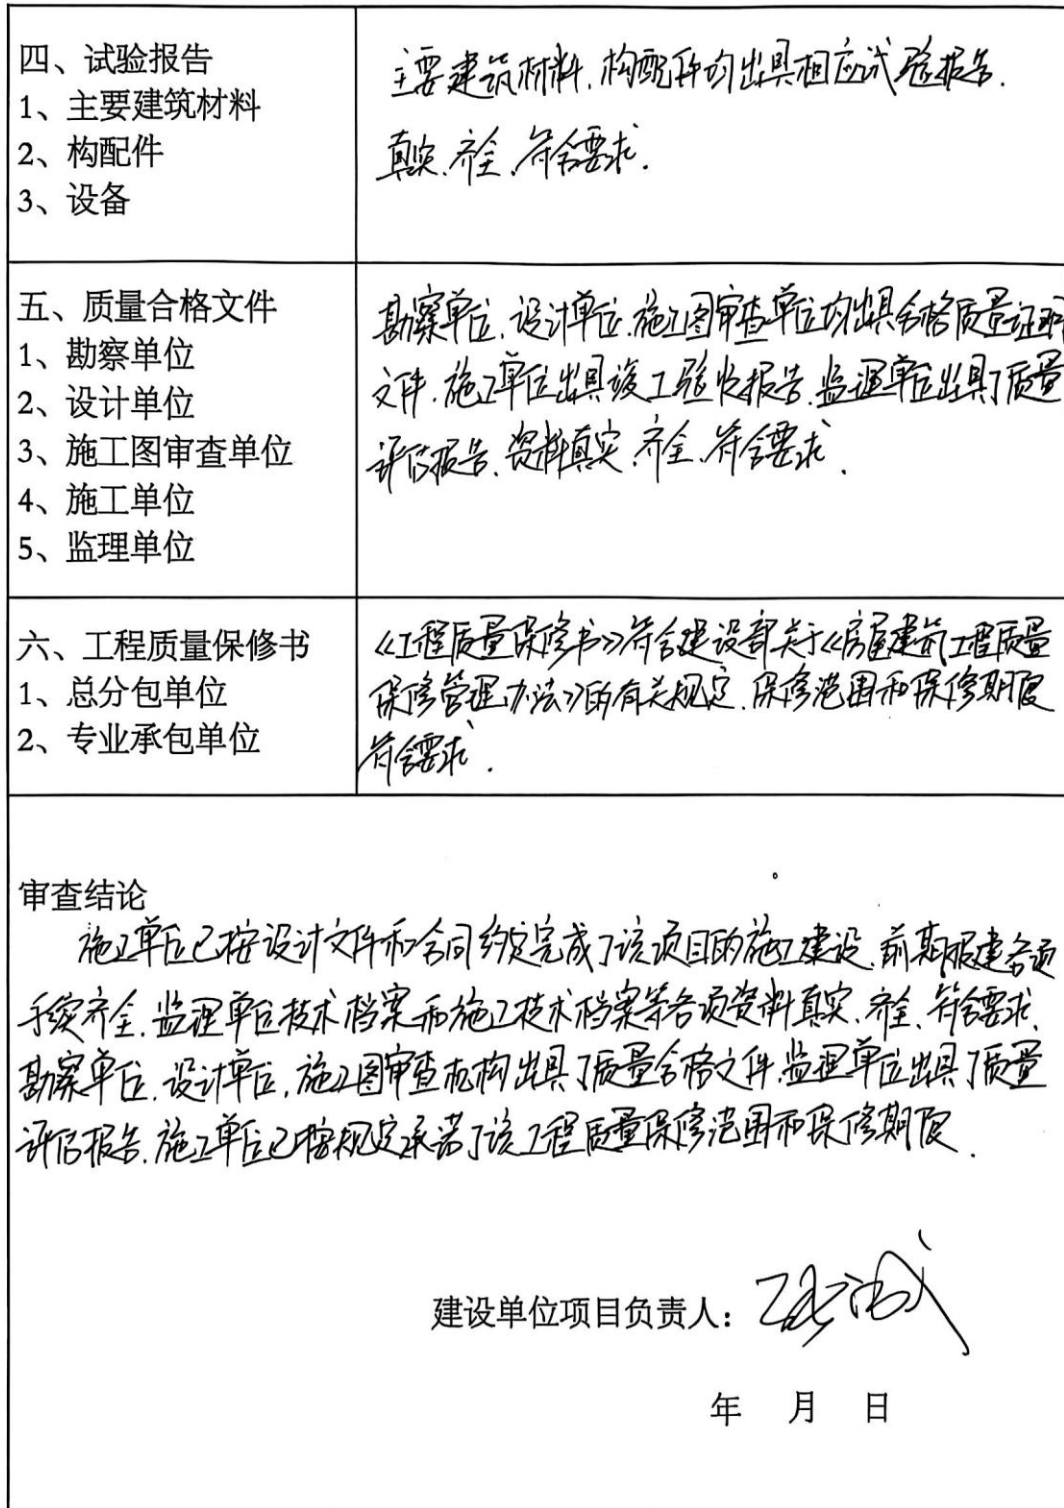 四、试验报告
1、主要建筑材料
2、构配件
3、设备
主要建筑材料、构配件均出具相应试验报告.
真实、齐全、符合要求.
五、质量合格文件
1、勘察单位
2、设计单位
3、施工图审查单位
4、施工单位
5、监理单位
勘察单位、设计单位、施工图审查单位均出具合格质量证明
文件、施工单位出具竣工验收报告、监理单位出具了质量
评估报告、资料真实、齐全、符合要求.
六、工程质量保修书
1、总分包单位
2、专业承包单位
《工程质量保修书》符合建设部关于《房屋建筑工程质量
保修管理办法》的有关规定、保修范围和保修期限
符合要求.
审查结论
施工单位已按设计文件和合同约定完成了该项目的施工建设、前期报建各项
手续齐全、监理单位技术档案和施工技术档案等各项资料真实、齐全、符合要求、
勘察单位、设计单位、施工图审查机构出具了质量合格文件、监理单位出具了质量
评估报告、施工单位已按规定承诺了该工程质量保修范围和保修期限.
建设单位项目负责人：
年 月 日